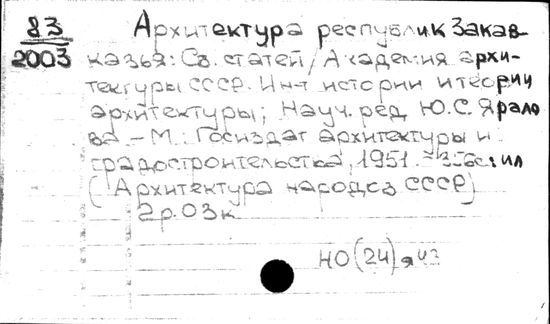 83
2003
Архитектура республик Закав-
казья: Сб. статей / Академия архи-
тектуры СССР. Ин-т истории и теории
архитектуры; Науч. ред. Ю.С. Ярало
ва. – М.: Госиздат архитектуры и
градостроительства, 1951. ил
(Архитектура народов СССР)
2р. 03к
НО(24)я43